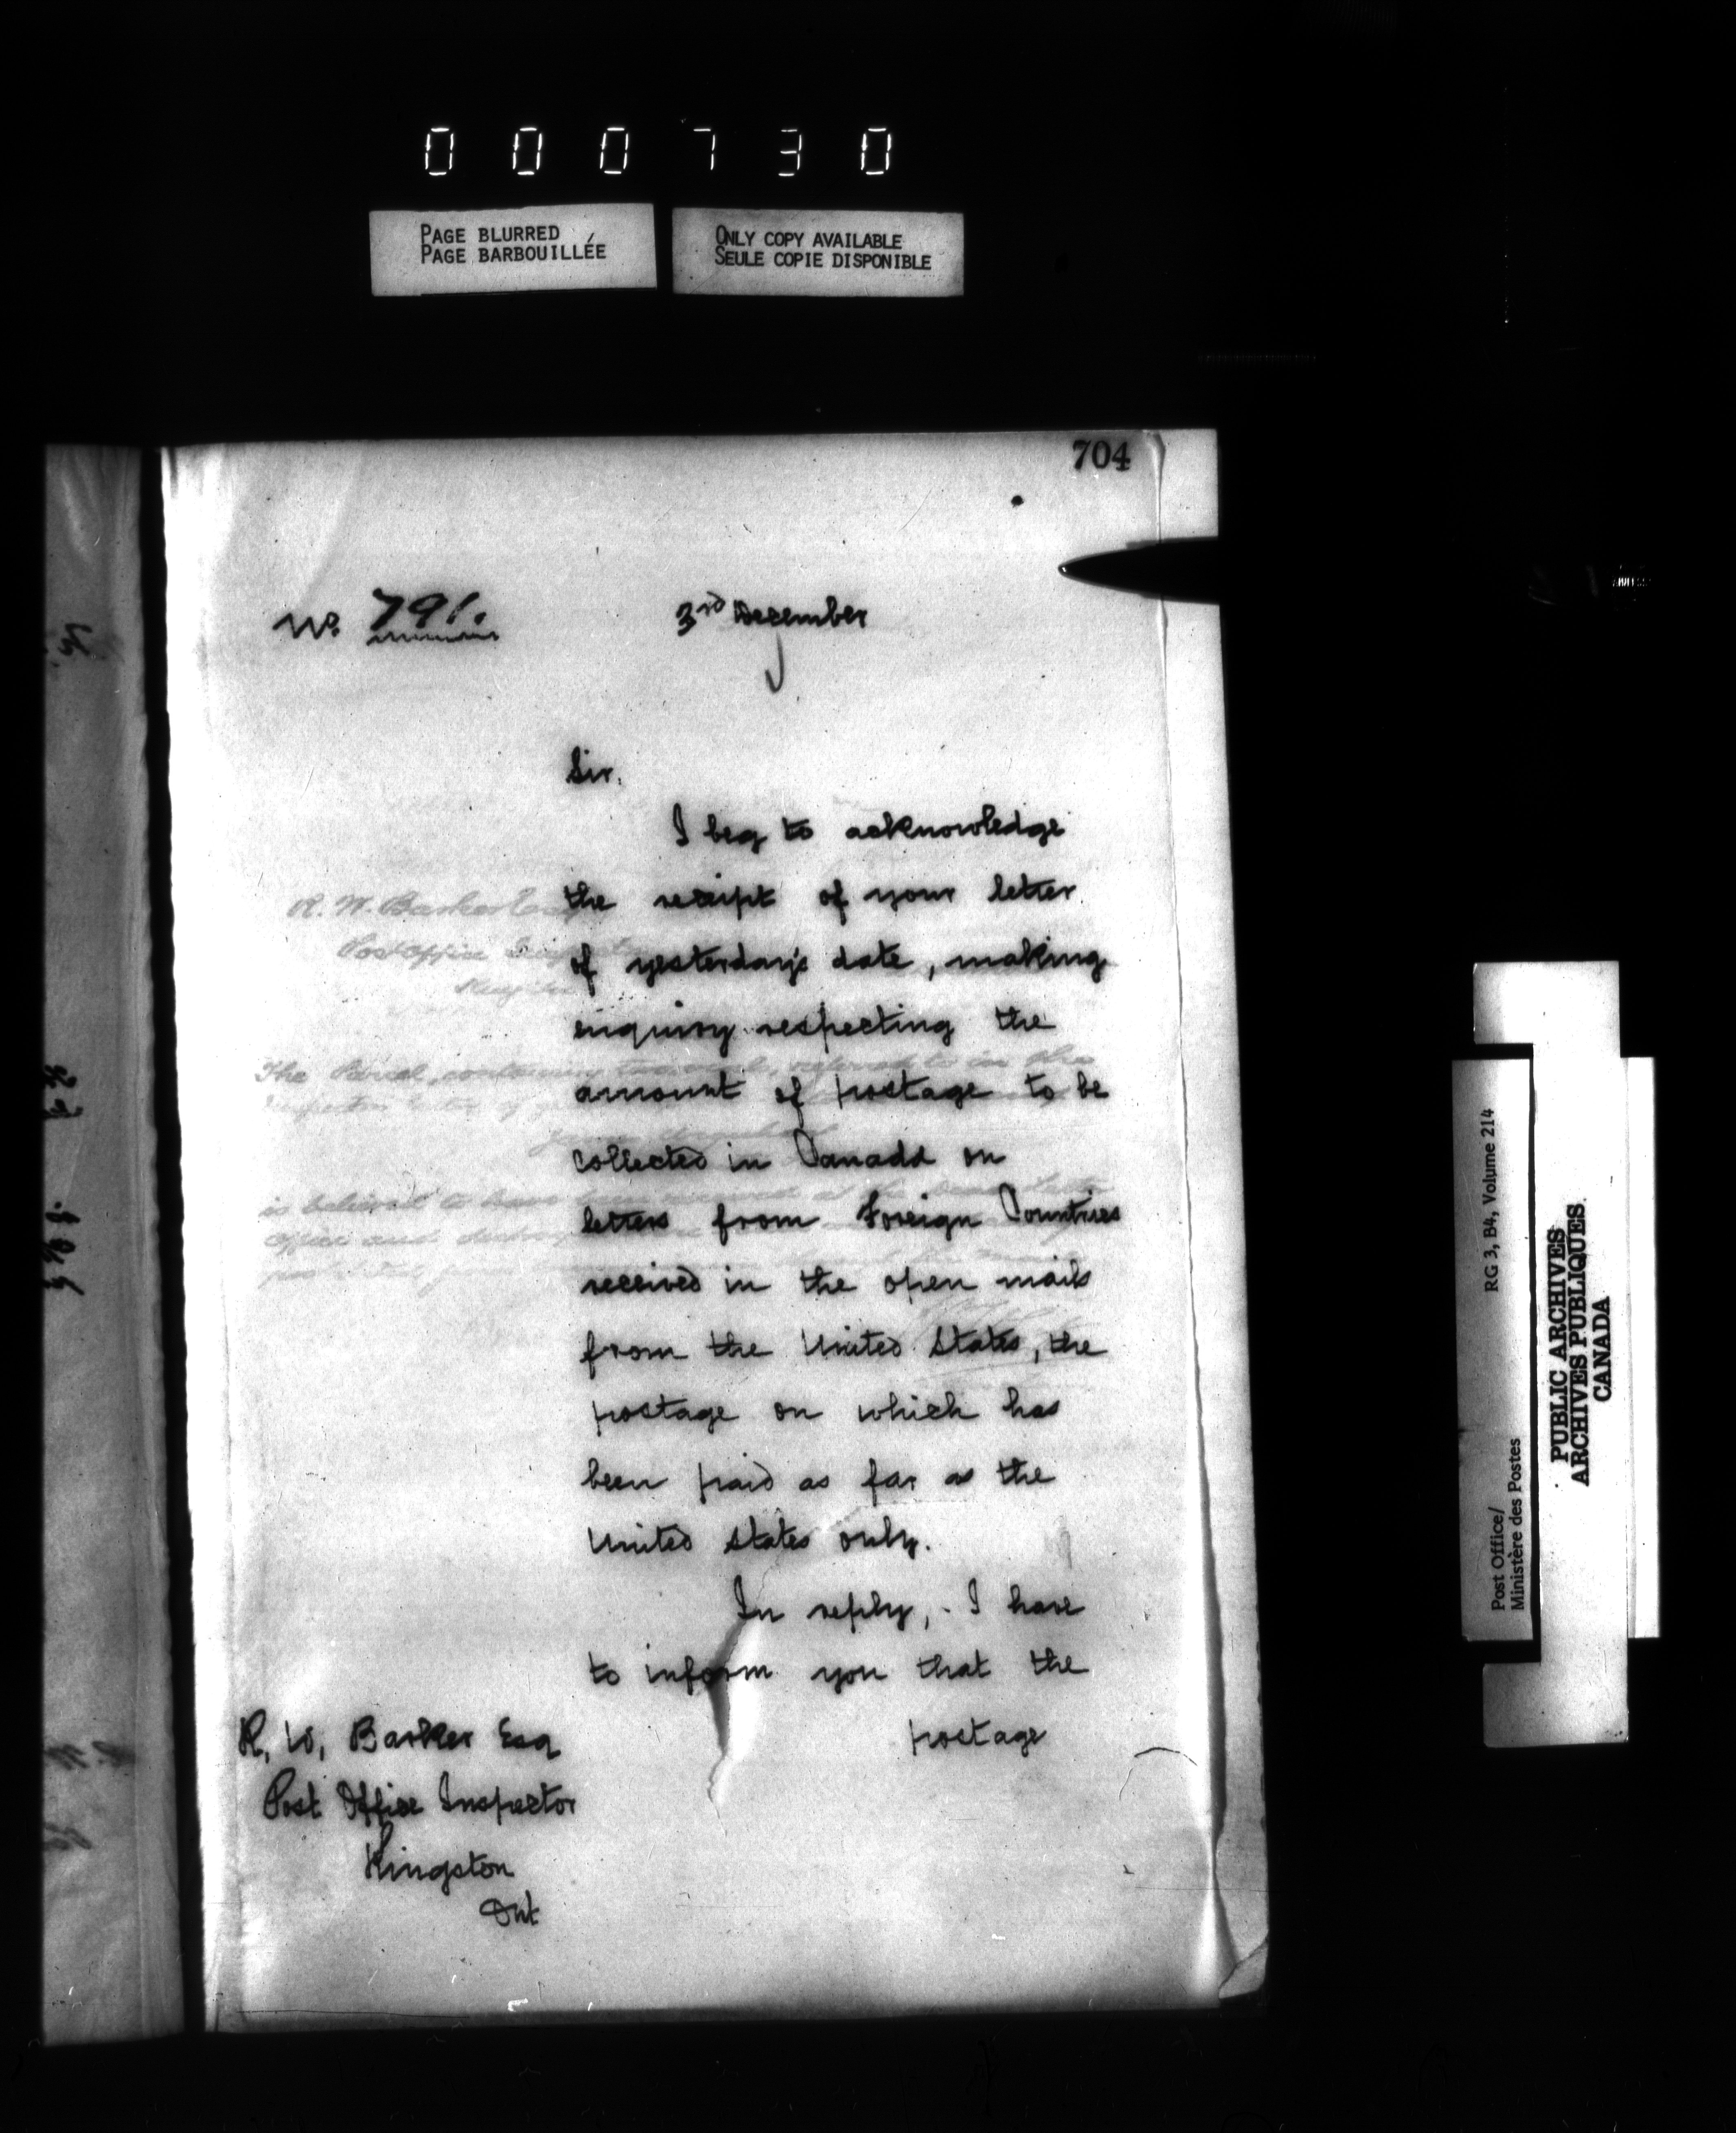 000730
PAGE BLURRED
PAGE BARBOUILLÉE
ONLY COPY AVAILABLE
SEULE COPIE DISPONIBLE
704
No. 791.
3rd December
Sir,
I beg to acknowledge
the receipt of your letter
of yesterday's date, making
enquiry respecting the
amount of postage to be
collected in Canada on
letters from Foreign Countries
received in the open mails
from the United States, the
postage on which has
been paid as far as the
United States only.
In reply, - I have
to inform you that the
postage
R. W. Barker Esq
Post Office Inspector
Kingston
Ont
R. W. Barker Esq
Post Office
The Parcel, containing
is believed to have been
office and
RG 3, B4, Volume 214
Post Office/
Ministère des Postes
PUBLIC ARCHIVES
ARCHIVES PUBLIQUES
CANADA